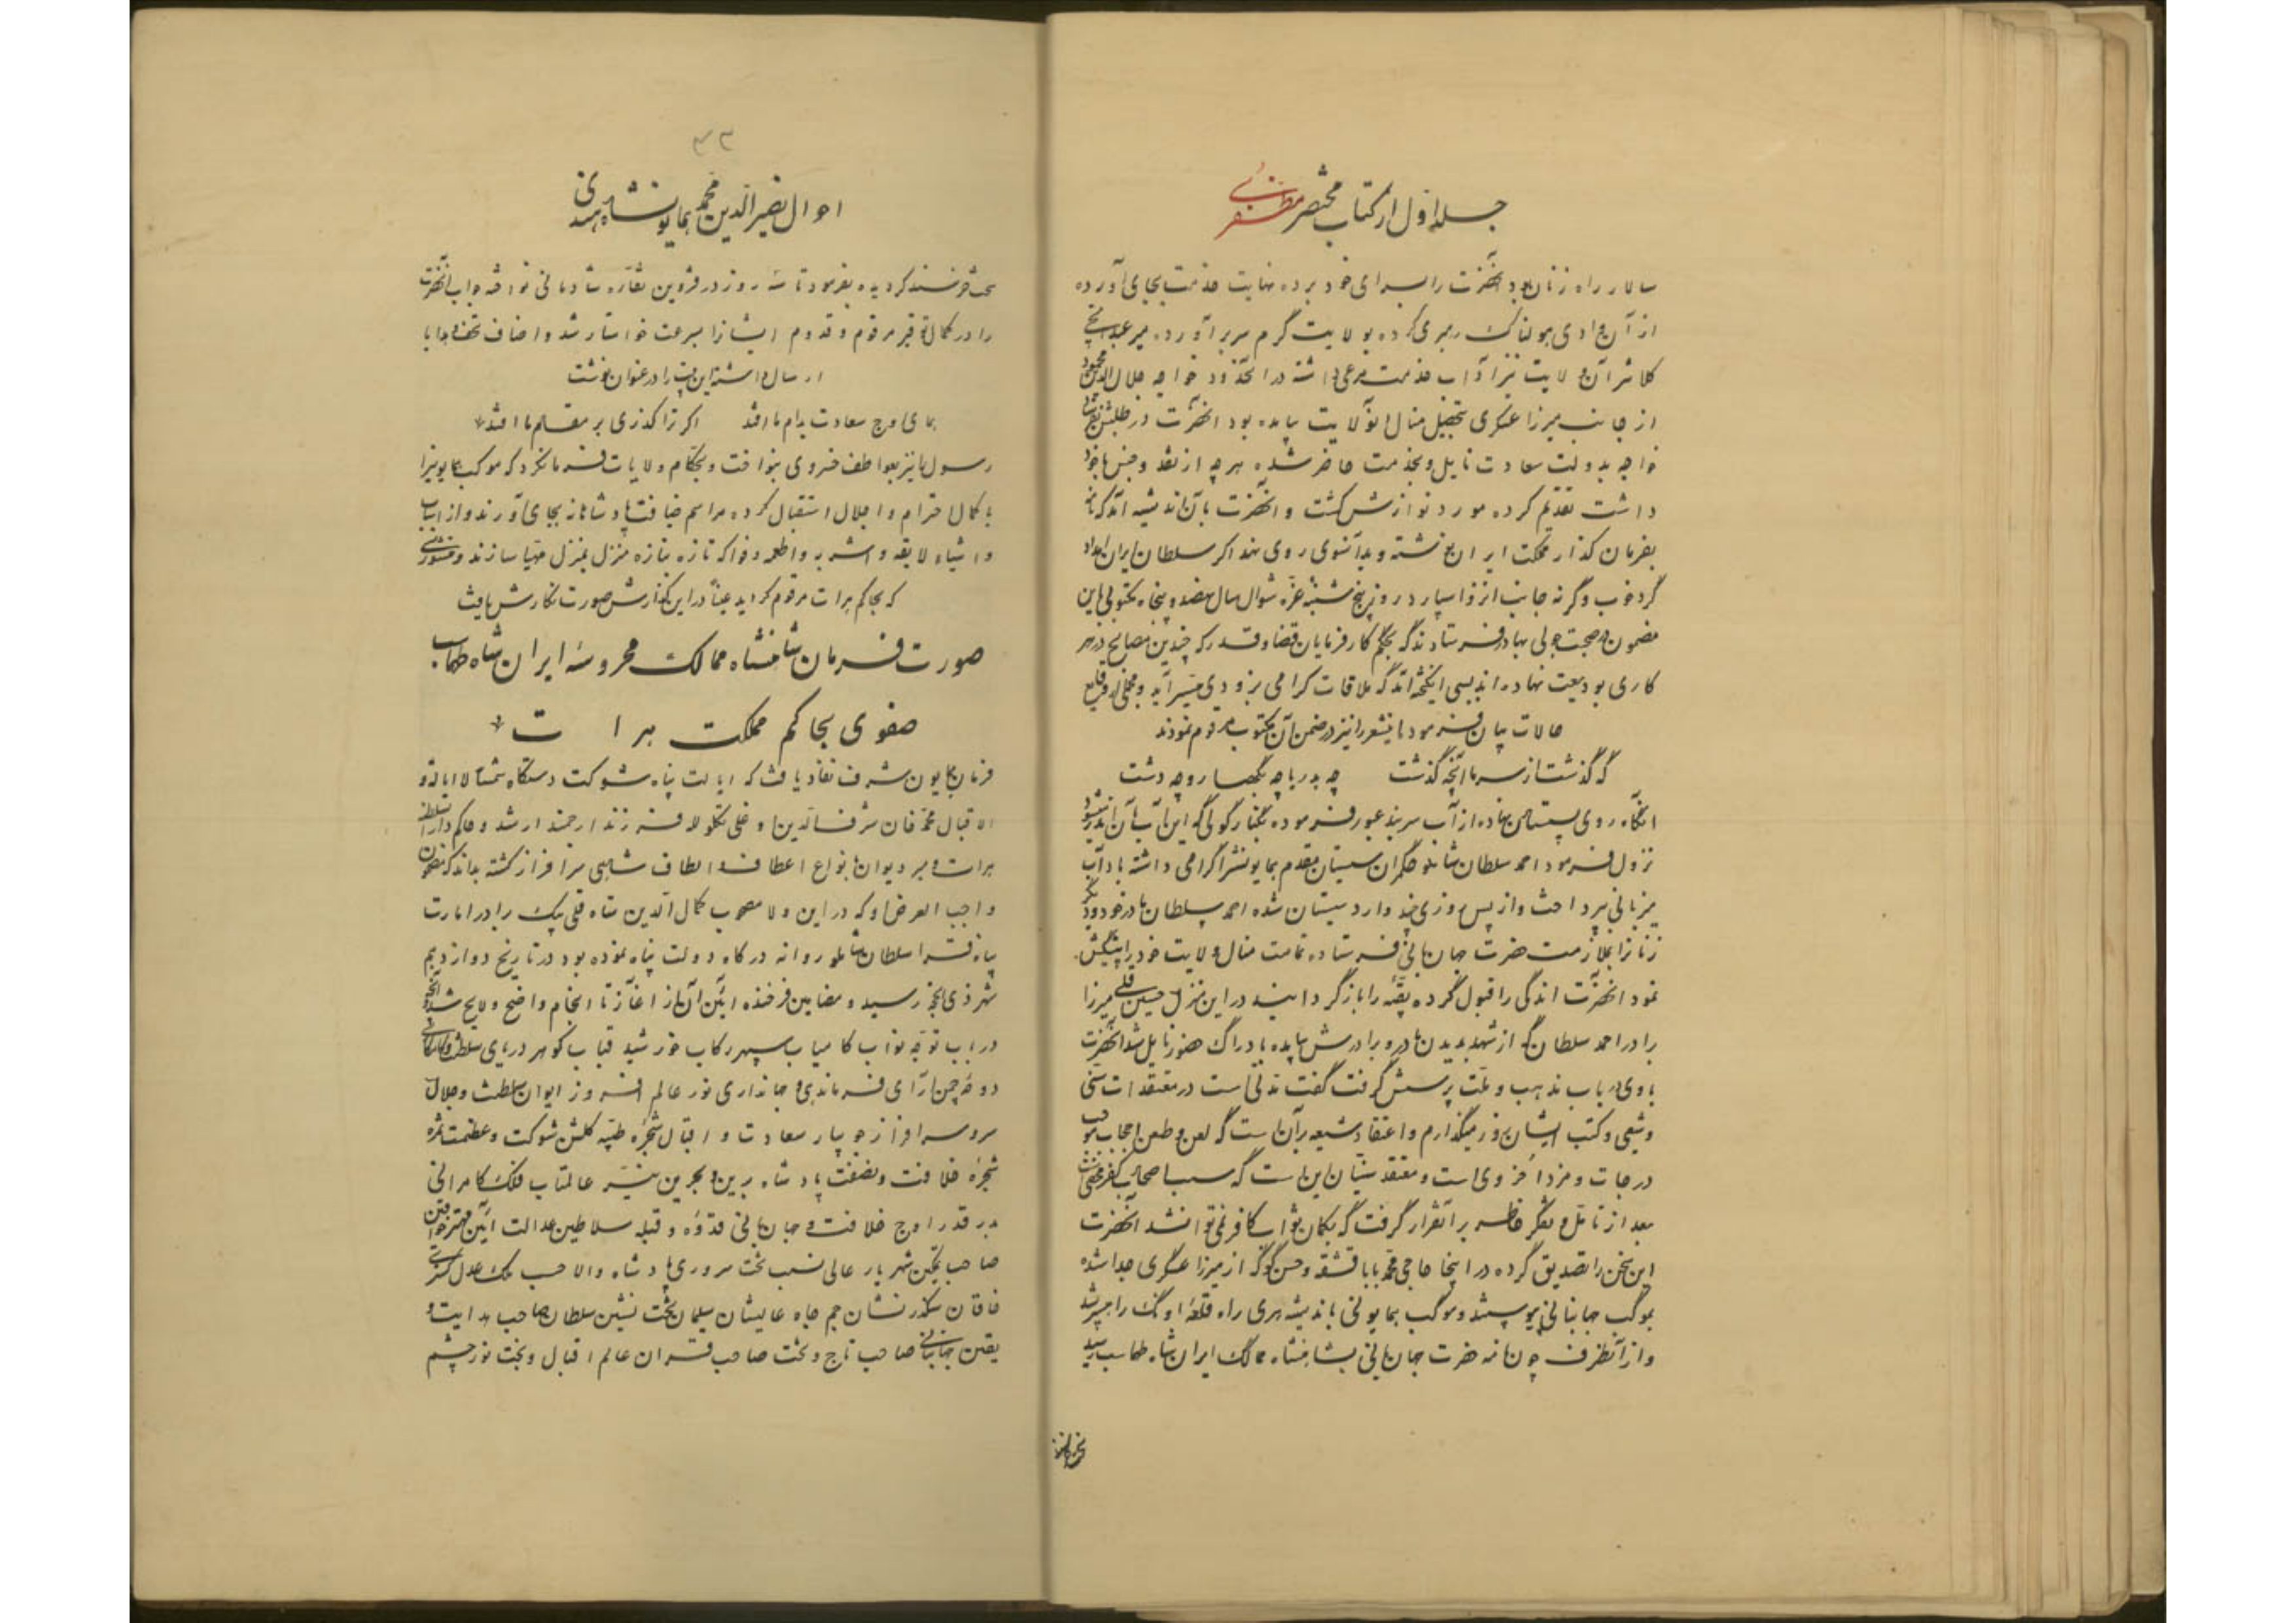 جلد اول از کتاب مختصر مظفری
سالار راه زنان بود آنحضرت را بسرای خود برده نهایت خدمت بجای آورده
از آن وادی هولناک رهبری کرده بولایت گرم سر برآورد. میر عبدالحی
کلانتر آن ولایت نیز آداب خدمت مرعی داشته در آنحدود خواجه جلال الدین محمود
از جانب میرزا عسکری بتحصیل منال آنولایت بیامده بود آنحضرت در طلبش
خواجه بدولت سعادت نایل و بخدمت حاضر شده هر چه از نقد و جنس با خود
داشت تقدیم کرده مورد نوازش گشت و آنحضرت بآن اندیشه آمد که نامه
بفرمان گذار مملکت ایران نوشته و بدآنسوی روی نهد اگر سلطان ایران امداد
کرد خوب و گرنه جانب انزوا سپارد روز پنج شنبه غره شوال سال نهصد و پنجاه مکتوبی باین
مضمون صحبت چولی بهادر فرستادند که بحکم کارفرمایان قضا و قدر که چندین مصالح در هر
کاری بودیعت نهاده اند بسی انگیخته اند که ملاقات گرامی بزودی میسر آید و مجملی از وقایع
حالات بیان فرموده اینشعر را نیز در ضمن آن مکتوب مرقوم نمودند
که گذشت از سر ما آنچه گذشت چه بدریا چه بکهسار و چه دشت
آنگاه روی بسیستان نهاده از آب هیرمند عبور فرموده بکنار کولی که این آب بآن اندر میشود
نزول فرمود احمد سلطان شاملو حکمران سیستان مقدم همایونش را گرامی داشته بآداب
میزبانی پرداخت و از پس روزی چند وارد سیستان شده احمد سلطان مادر خود و دیگر
زنانرا بملازمت حضرت جهانبانی فرستاده تمامت منال ولایت خود را پیشکش
نمود آنحضرت اندکی را قبول کرده بقیه را بازگردانید در این منزل حسین قلی میرزا
برادر احمد سلطان که از مشهد بدیدن مادر و برادرش بیامده بادراک حضور نایل شد آنحضرت
با وی در باب مذهب و ملت پرسش گرفت گفت مدتی است در معتقدات سنی
و شیعی و کتب ایشان روز میگذارم و اعتقاد شیعه برآن است که لعن و طعن اصحاب موجب
درجات و مزد اخروی است و معتقد سنیان این است که سب اصحاب کفر محض است
بعد از تامل و تفکر خاطر بر آن قرار گرفت که بگمان ثواب کافر نمی توان شد آنحضرت
این سخن را تصدیق کرده در اینجا حاجی محمد بابا قشقه و حسن کوکه از میرزا عسکری جدا شده
بموکب جهانبانی پیوستند و موکب همایونی باندیشه هری راه قلعه اوک را سپر شد
و از آنطرف چون نامه حضرت جهانبانی بشاهنشاه ممالک ایران شاه طهماسب رسید
۴۳
احوال نصیر الدین محمد همایون شاه هندی
سخت خرسند گردیده بفرمود تا سه روز در قزوین نقاره شادمانی نواخته جواب آنحضرت
را در کمال توقیر مرقوم و قدوم ایشانرا بسرعت خواستار شد و اضاف تحف و هدایا
ارسال داشته این بیت را در عنوان نوشت
همای اوج سعادت بدام ما افتد اگر ترا گذری بر مقام ما افتد
رسول را نیز بعواطف خسروی بنواخت و بحکام ولایات فرمان کرد که موکب همایونیرا
با کمال احترام و اجلال استقبال کرده مراسم ضیافت پادشاهانه بجای آورند و از اسباب
و اشیاء لایقه و اشربه و اطعمه و فواکه تازه بتازه منزل بمنزل مهیا سازند و منشوری
که بحاکم هرات مرقوم گردید عیناً در این گذارش صورت نگارش یافت
صورت فرمان شاهنشاه ممالک محروسه ایران شاه طهماسب
صفوی بحاکم مملکت هرات
فرمان همایون شرف نفاذ یافت که ایالت پناه شوکت دستگاه شمسا للایالة و
الاقبال محمد خان شرف الدین اوغلی تکلو لله فرزند ارجمند ارشد و حاکم دار السلطنه
هرات و میر دیوان بانواع اعطاف و الطاف شاهی سرافراز گشته بداند که مضمون
واجب العرض او که در این ولا مصحوب کمال الدین شاه قلی بیک برادر امارت
پناه قرا سلطان شاملو روانه درگاه دولت پناه نموده بود در تاریخ دوازدهم
شهر ذی الحجه رسید و مضامین فرخنده آئین آن از آغاز تا انجام واضح و لایح شد و آنچه
در باب توجه نواب کامیاب سپهر رکاب خورشید قباب گوهر دریای سلطنت و کامکاری
دوحه چمن آرای فرماندهی و جهانداری نور عالم افروز ایوان سلطنت و جلال
سرو سرافراز جویبار سعادت و اقبال شجره طیبه گلشن شوکت و عظمت ثمره
شجره خلافت و نصفت پادشاه برین و بحرین نیر عالمتاب فلک کامرانی
بدر قدر اوج خلافت و جهانبانی قدوه و قبله سلاطین عدالت آئین مهتر خواقین
صاحب تمکین شهریار عالی نسب تخت سروری پادشاه والا حسب ملک عدل گستری
خاقان سکندر نشان جم جاه عالیشان سلیمان تخت نشین سلطان صاحب هدایت و
یقین جهانبانی صاحب تاج و تخت صاحب قران عالم اقبال و بخت نور چشم